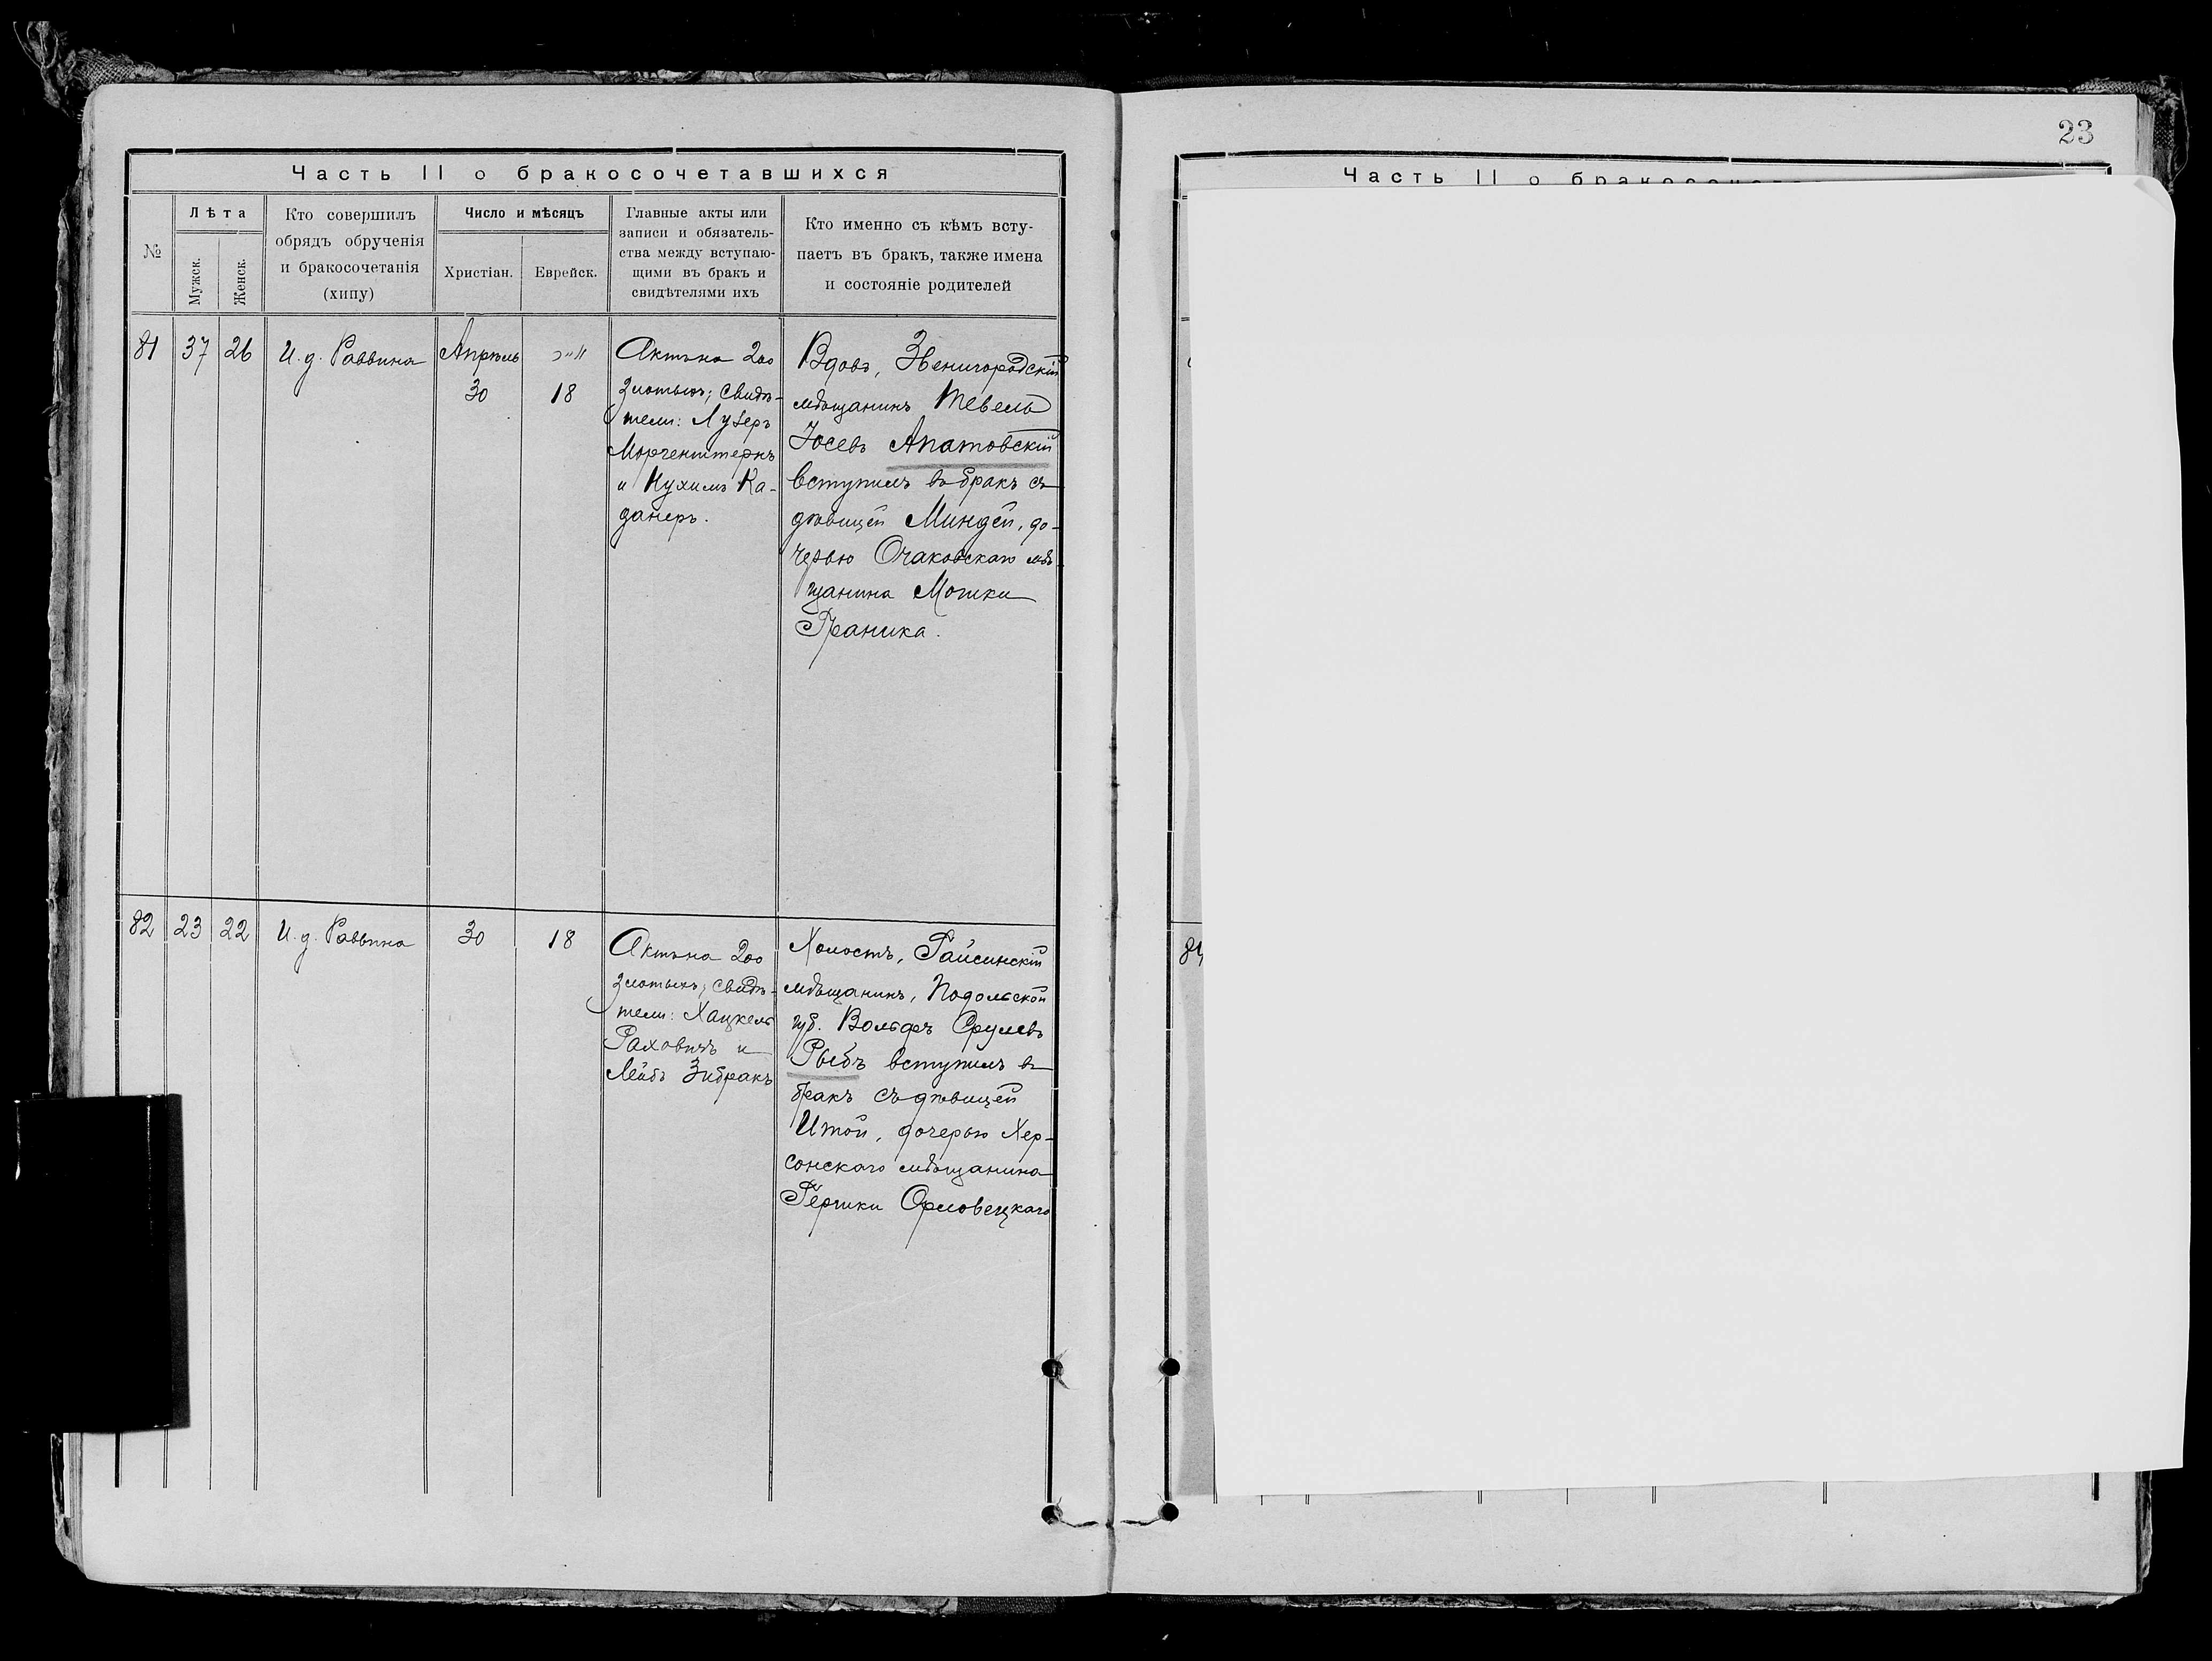 23
Часть II о бракосочетавшихся
Часть II о
№
Лѣта
Мужск.
Женск.
Кто совершилъ
обрядъ обрученія
и бракосочетанія
(хипу)
Число и мѣсяцъ
Христіан.
Еврейск.
Главные акты или
записи и обязатель-
ства между вступаю-
щими въ бракъ и
свидѣтелями ихъ
Кто именно съ кѣмъ всту-
паетъ въ бракъ, также имена
и состояніе родителей
81
37
26
И. д. Раввина
Апрѣль
30
18
Актъ на 200
злотыхъ; свидѣ-
тели: Лузеръ
Моргенштернъ
и Нухимъ Ка-
данеръ.
Вдовъ, Звенигородскій
мѣщанинъ Тевель
Іосевъ Апатовскій
вступилъ въ бракъ съ
дѣвицей Миндей, до-
черью Очаковскаго мѣ-
щанина Мошки
Граника.
82
23
22
И. д. Раввина
30
18
Актъ на 200
злотыхъ; свидѣ-
тели: Хацкель
Раховичъ и
Лейбъ Зибракъ
Холостъ, Гайсинскій
мѣщанинъ, Подольской
губ. Вольфъ Срулевъ
Рыбъ вступилъ въ
бракъ съ дѣвицей
Итой, дочерью Хер-
сонскаго мѣщанина
Гершки Орловецкаго
84